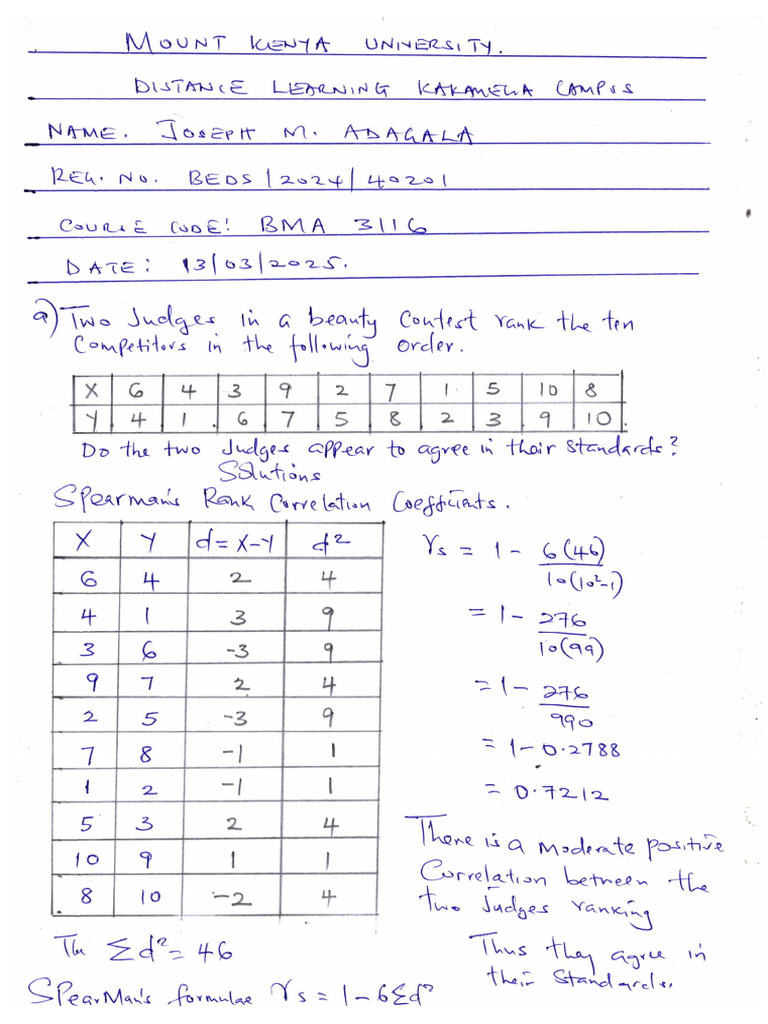 MOUNT KENYA UNIVERSITY.
DISTANCE LEARNING KAKAMEGA CAMPUS
NAME. JOSEPH M. ADAGALA
REG. NO. BEDS/2024/40201
COURSE CODE: BMA 3116
DATE: 13/03/2025.
a) Two Judges in a beauty Contest rank the ten
Competitors in the following order.
X 6 4 3 9 2 7 1 5 10 8
Y 4 1 6 7 5 8 2 3 9 10
Do the two Judges appear to agree in their standards?
Solutions
Spearman's Rank Correlation Coefficients.
X Y d=X-Y d²
6 4 2 4
4 1 3 9
3 6 -3 9
9 7 2 4
2 5 -3 9
7 8 -1 1
1 2 -1 1
5 3 2 4
10 9 1 1
8 10 -2 4
The Σd²=46
SpearMan's formulae rs = 1-6Σd²
rs = 1 - 6(46)
10(10²-1)
= 1 - 276
10(99)
= 1 - 276
990
= 1-0.2788
= 0.7212
There is a moderate positive
Correlation between the
two Judges ranking
Thus they agree in
their standards.